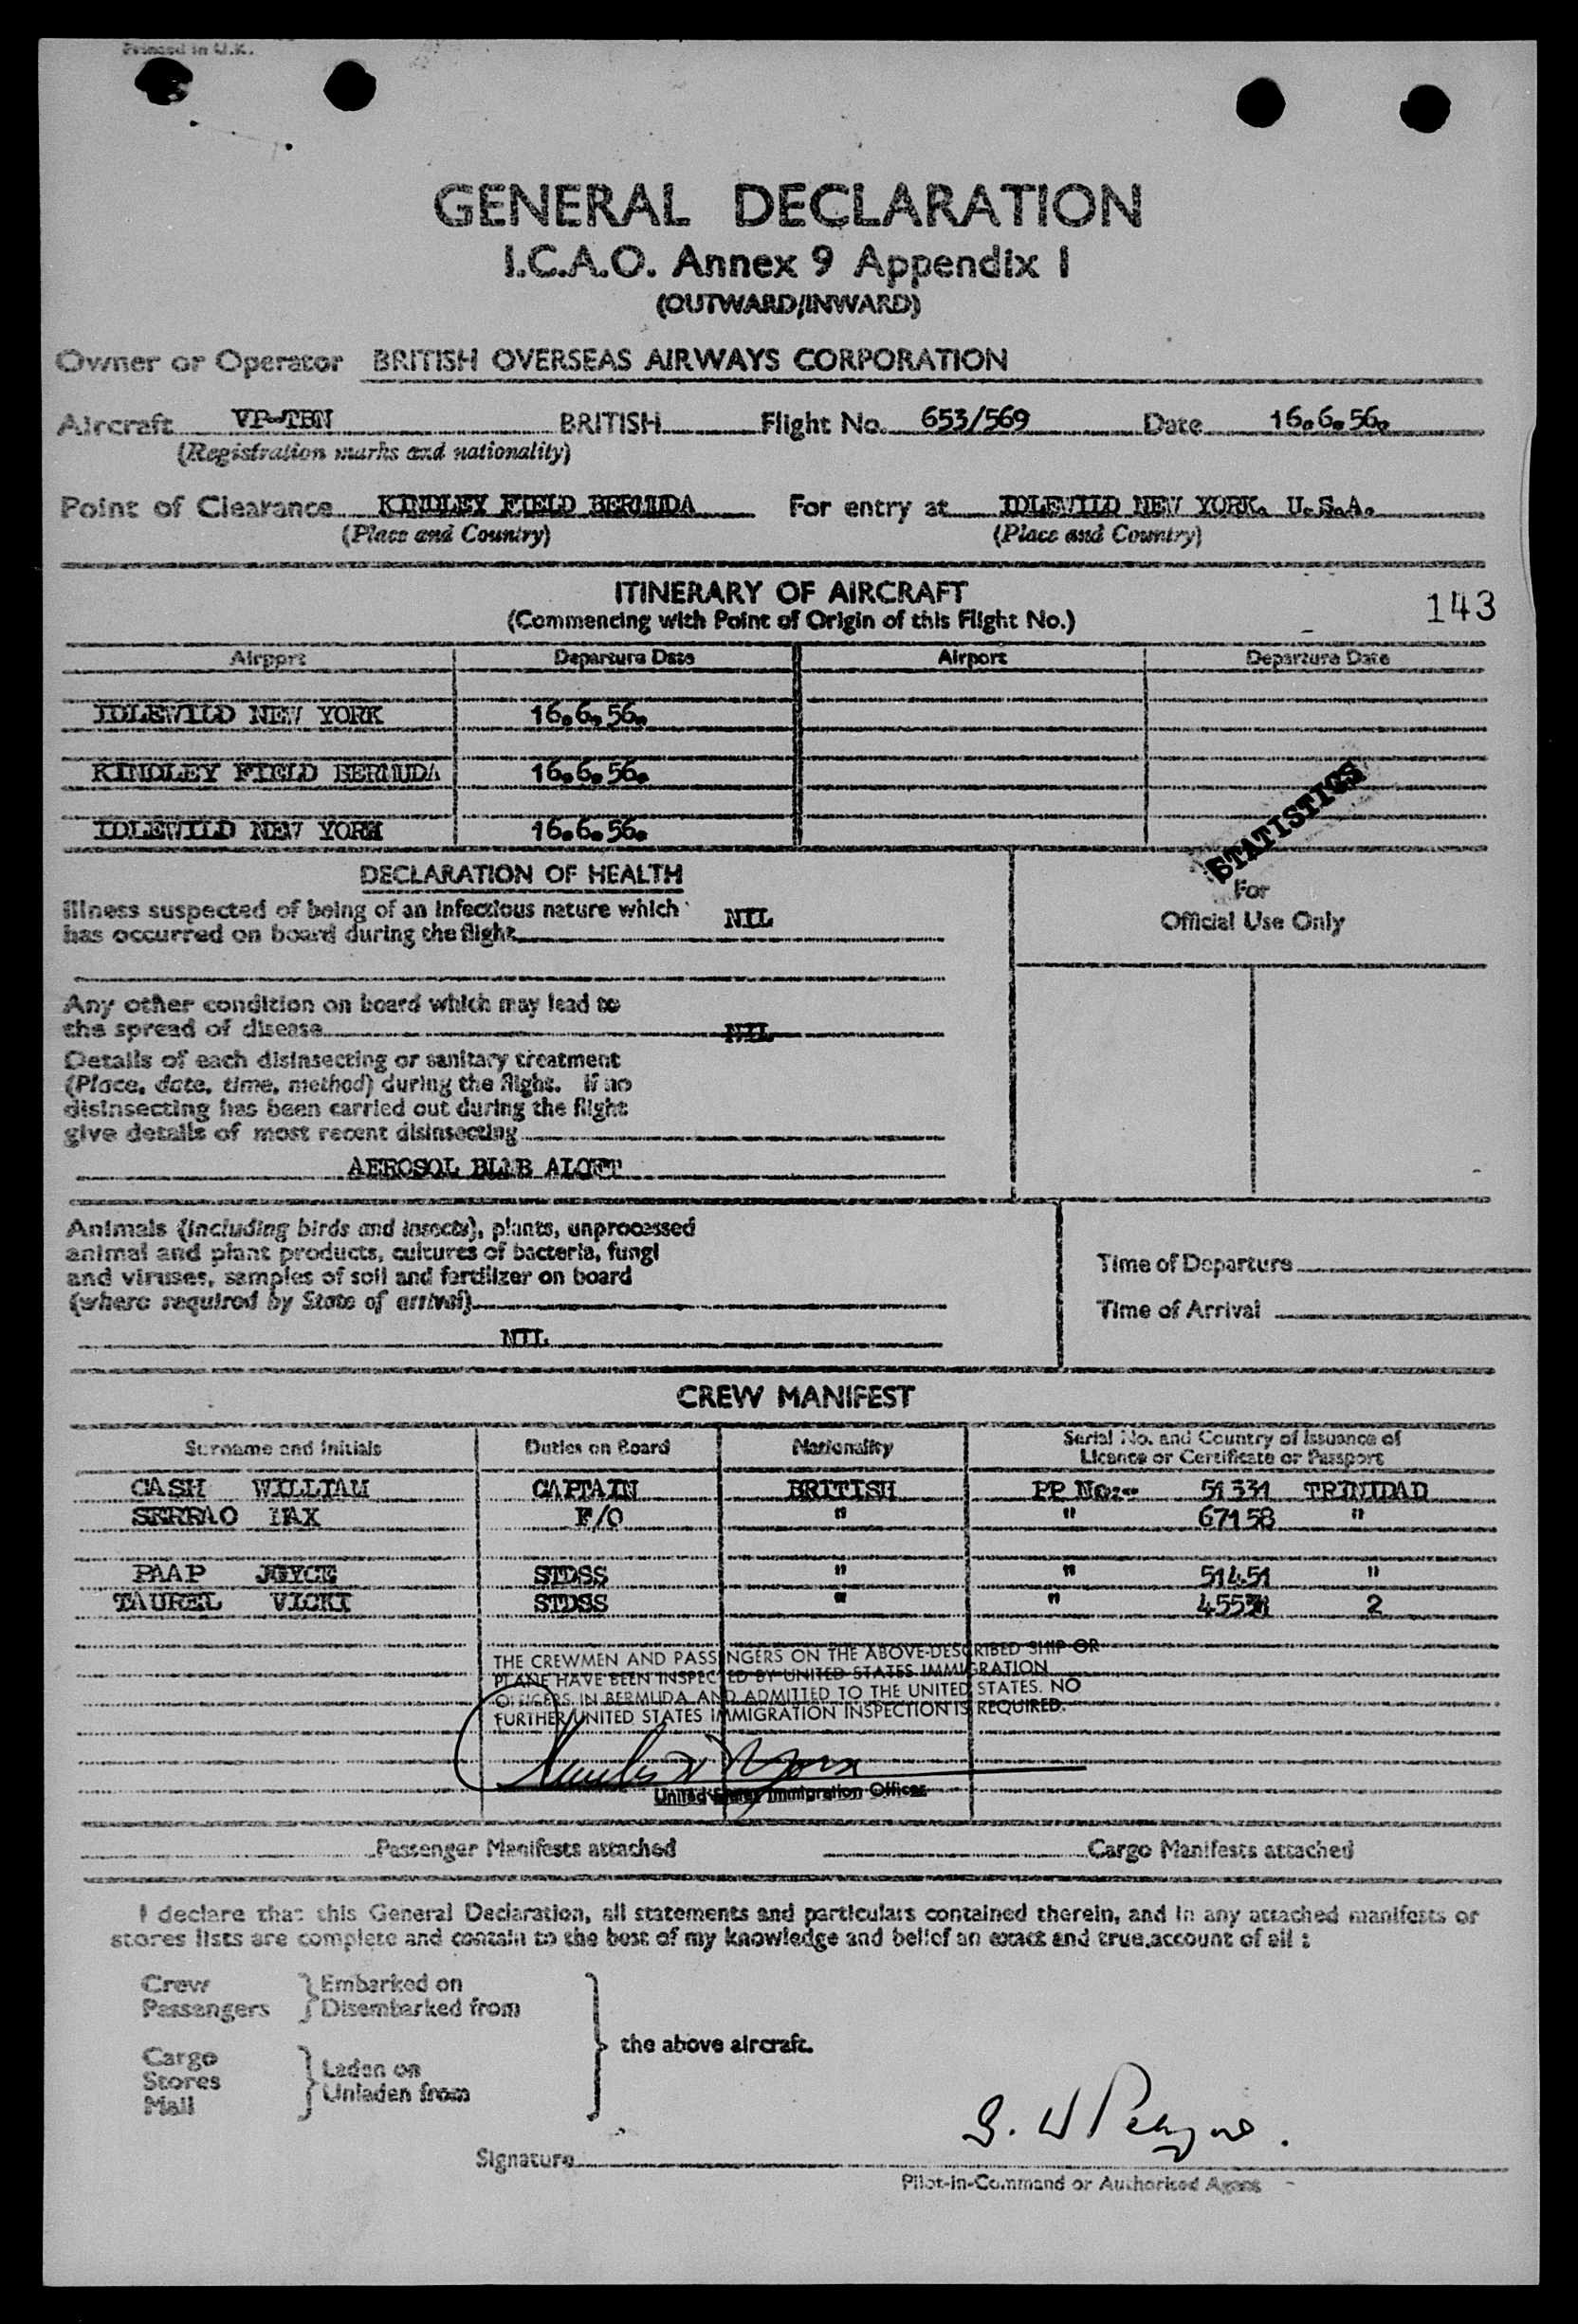 Printed in U.K.
GENERAL DECLARATION
I.C.A.O. Annex 9 Appendix 1
(OUTWARD/INWARD)
Owner or Operator BRITISH OVERSEAS AIRWAYS CORPORATION
Aircraft VP-TBN BRITISH Flight No. 653/569 Date 16.6.56.
(Registration marks and nationality)
Point of Clearance KINDLEY FIELD BERMUDA For entry at IDLEWILD NEW YORK. U.S.A.
(Place and Country) (Place and Country)
ITINERARY OF AIRCRAFT
(Commencing with Point of Origin of this Flight No.)
143
Airport Departure Date Airport Departure Date
IDLEWILD NEW YORK 16.6.56.
KINDLEY FIELD BERMUDA 16.6.56.
IDLEWILD NEW YORK 16.6.56.
STATISTICS
DECLARATION OF HEALTH
For
Official Use Only
Illness suspected of being of an infectious nature which NIL
has occurred on board during the flight
Any other condition on board which may lead to
the spread of disease NIL
Details of each disinsecting or sanitary treatment
(Place, date, time, method) during the flight. If no
disinsecting has been carried out during the flight
give details of most recent disinsecting
AEROSOL ALOFT
Animals (including birds and insects), plants, unprocessed
animal and plant products, cultures of bacteria, fungi
and viruses, samples of soil and fertilizer on board
(where required by State of arrival)
NIL
Time of Departure
Time of Arrival
CREW MANIFEST
Surname and Initials Duties on Board Nationality Serial No. and Country of Issuance of
Licence or Certificate or Passport
CASH WILLIAM CAPTAIN BRITISH PP No:- 51331 TRINIDAD
SERRAO MAX F/O " " 67158 "
PAAP JOYCE STDSS " " 51451 "
TAUREL VICKI STDSS " " 2
THE CREWMEN AND PASSENGERS ON THE ABOVE-DESCRIBED SHIP OR
PLANE HAVE BEEN INSPECTED BY UNITED STATES IMMIGRATION
OFFICERS IN BERMUDA AND ADMITTED TO THE UNITED STATES. NO
FURTHER UNITED STATES IMMIGRATION INSPECTION IS REQUIRED.
United States Immigration Officer
Passenger Manifests attached Cargo Manifests attached
I declare that this General Declaration, all statements and particulars contained therein, and in any attached manifests or
stores lists are complete and contain to the best of my knowledge and belief an exact and true account of all :
Crew
Passengers
Embarked on
Disembarked from
Cargo
Stores
Mail
Laden on
Unladen from
the above aircraft.
Signature
Pilot-in-Command or Authorised Agent